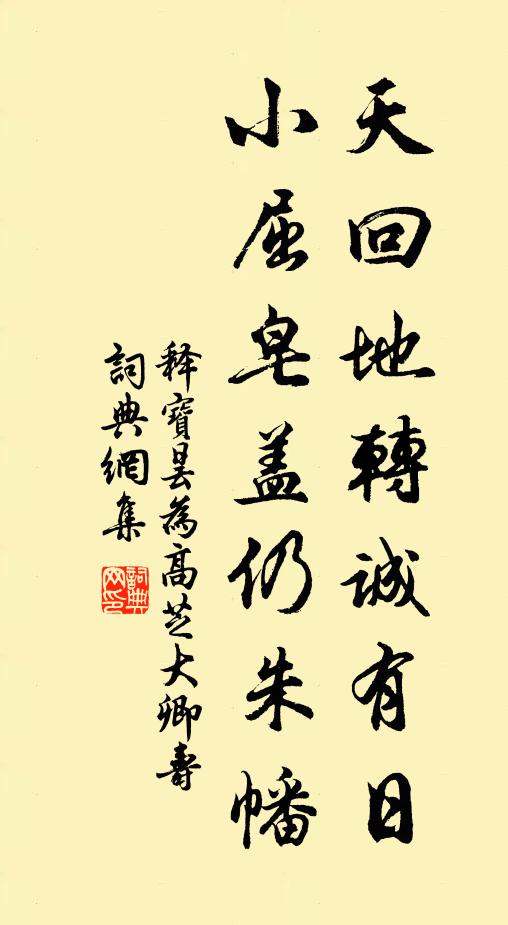 天回地轉誠有日
小屈皂盖仍朱幡
释寶曇為高芝大卿壽
詞典網集
詞典网印